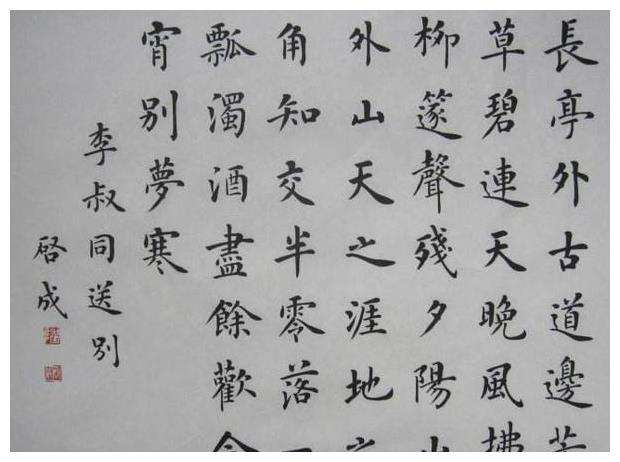 長亭外古道邊芳
草碧連天晚風拂
柳篴聲殘夕陽山
外山天之涯地之
角知交半零落一
瓢濁酒盡餘歡今
宵別夢寒
李叔同送别
啓成